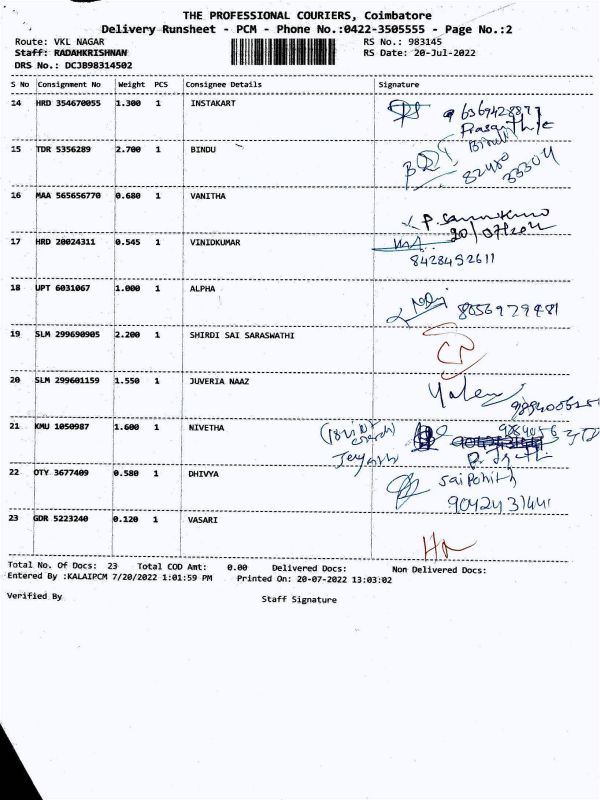 THE PROFESSIONAL COURIERS, Coimbatore
Delivery Runsheet - PCM - Phone No.:0422-3505555 - Page No.:2
Route: VKL NAGAR RS No.: 983145
Staff: RADAHKRISHNAN RS Date: 20-Jul-2022
DRS No.: DCJB98314502
S No Consignment No Weight PCS Consignee Details Signature
14 HRD 354670055 1.300 1 INSTAKART
15 TDR 5356289 2.700 1 BINDU
Bindu
82480
33304
16 MAA 565656770 0.680 1 VANITHA
20/07/2022
17 HRD 20024311 0.545 1 VINIDKUMAR
8428492611
18 UPT 6031067 1.000 1 ALPHA
8056979481
19 SLM 299690905 2.200 1 SHIRDI SAI SARASWATHI
20 SLM 299601159 1.550 1 JUVERIA NAAZ
21 KMU 1050987 1.600 1 NIVETHA
22 OTY 3677409 0.580 1 DHIVYA
9042431441
23 GDR 5223240 0.120 1 VASARI
Total No. Of Docs: 23 Total COD Amt: 0.00 Delivered Docs: Non Delivered Docs:
Entered By :KALAIPCM 7/20/2022 1:01:59 PM Printed On: 20-07-2022 13:03:02
Verified By Staff Signature